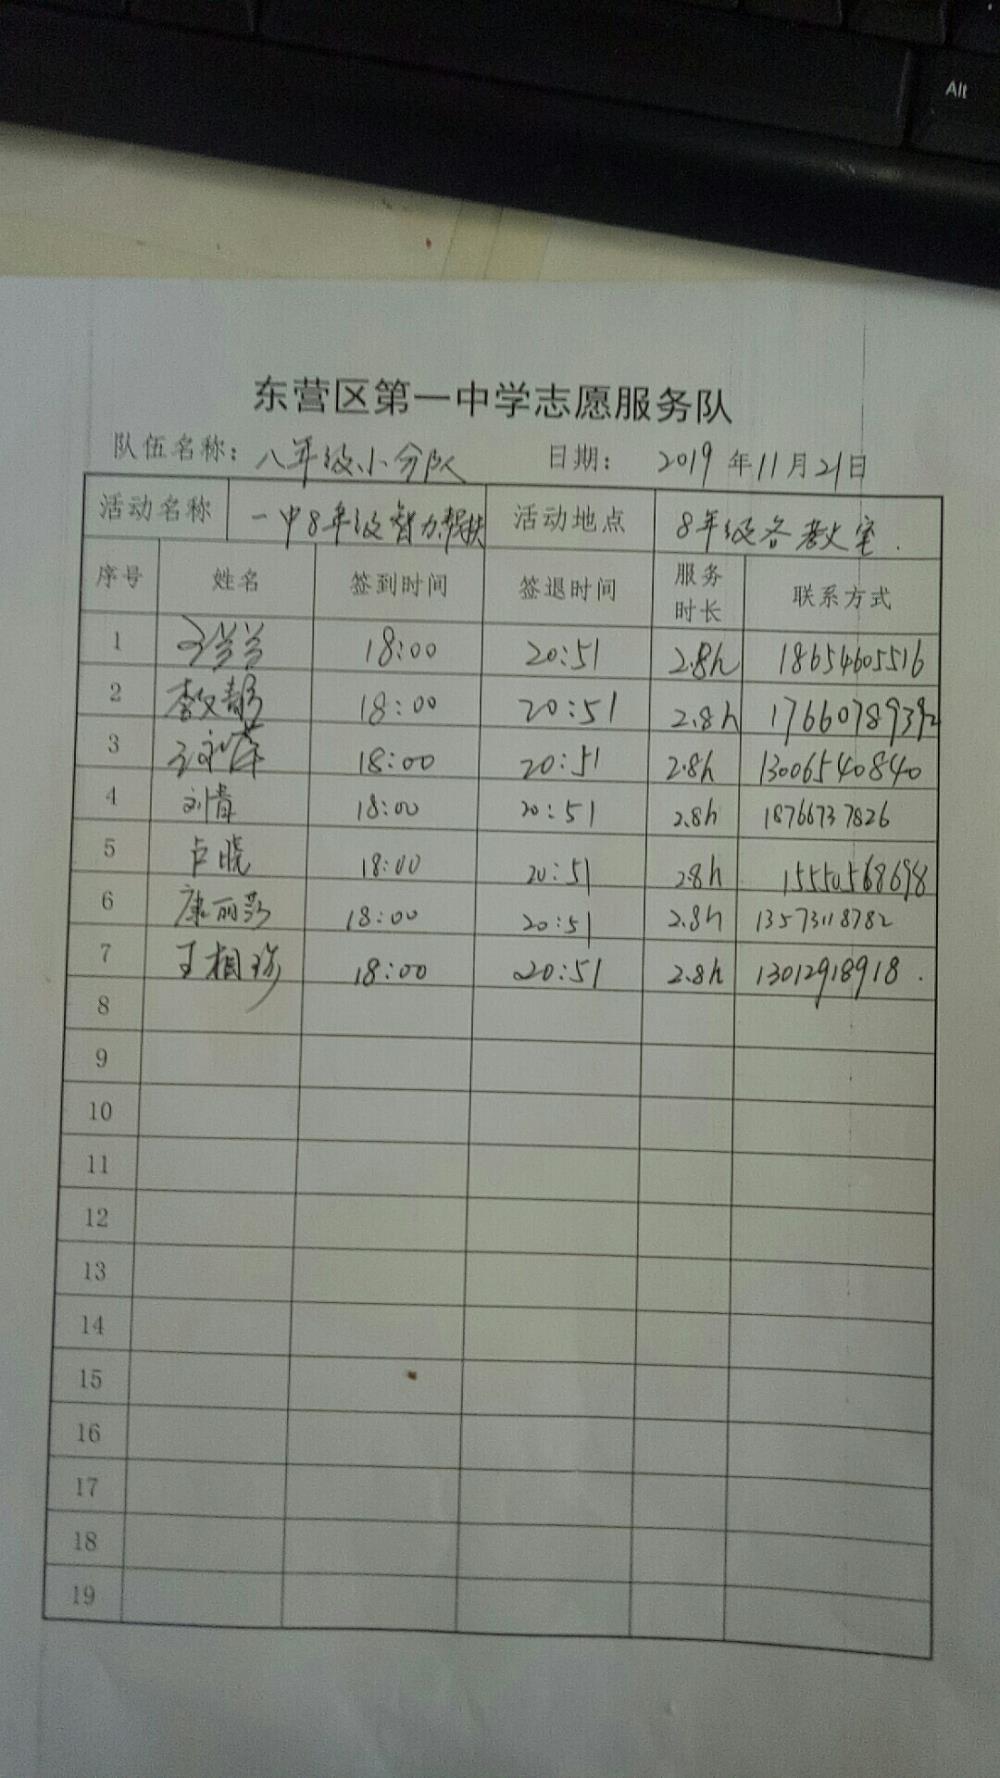 Alt
东营区第一中学志愿服务队
队伍名称：八年级小分队 日期： 2019年11月21日
活动名称 一中8年级智力帮扶 活动地点 8年级各教室.
序号 姓名 签到时间 签退时间 服务时长 联系方式
1 18:00 20:51 2.8h 18654605516
2 李文静 18:00 20:51 2.8h 17660789392
3 18:00 20:51 2.8h 13006540840
4 刘青 18:00 20:51 2.8h 18766737826
5 卢晓 18:00 20:51 2.8h 15550568698
6 康丽莎 18:00 20:51 2.8h 13573118782
7 王相珍 18:00 20:51 2.8h 13012918918.
8
9
10
11
12
13
14
15
16
17
18
19